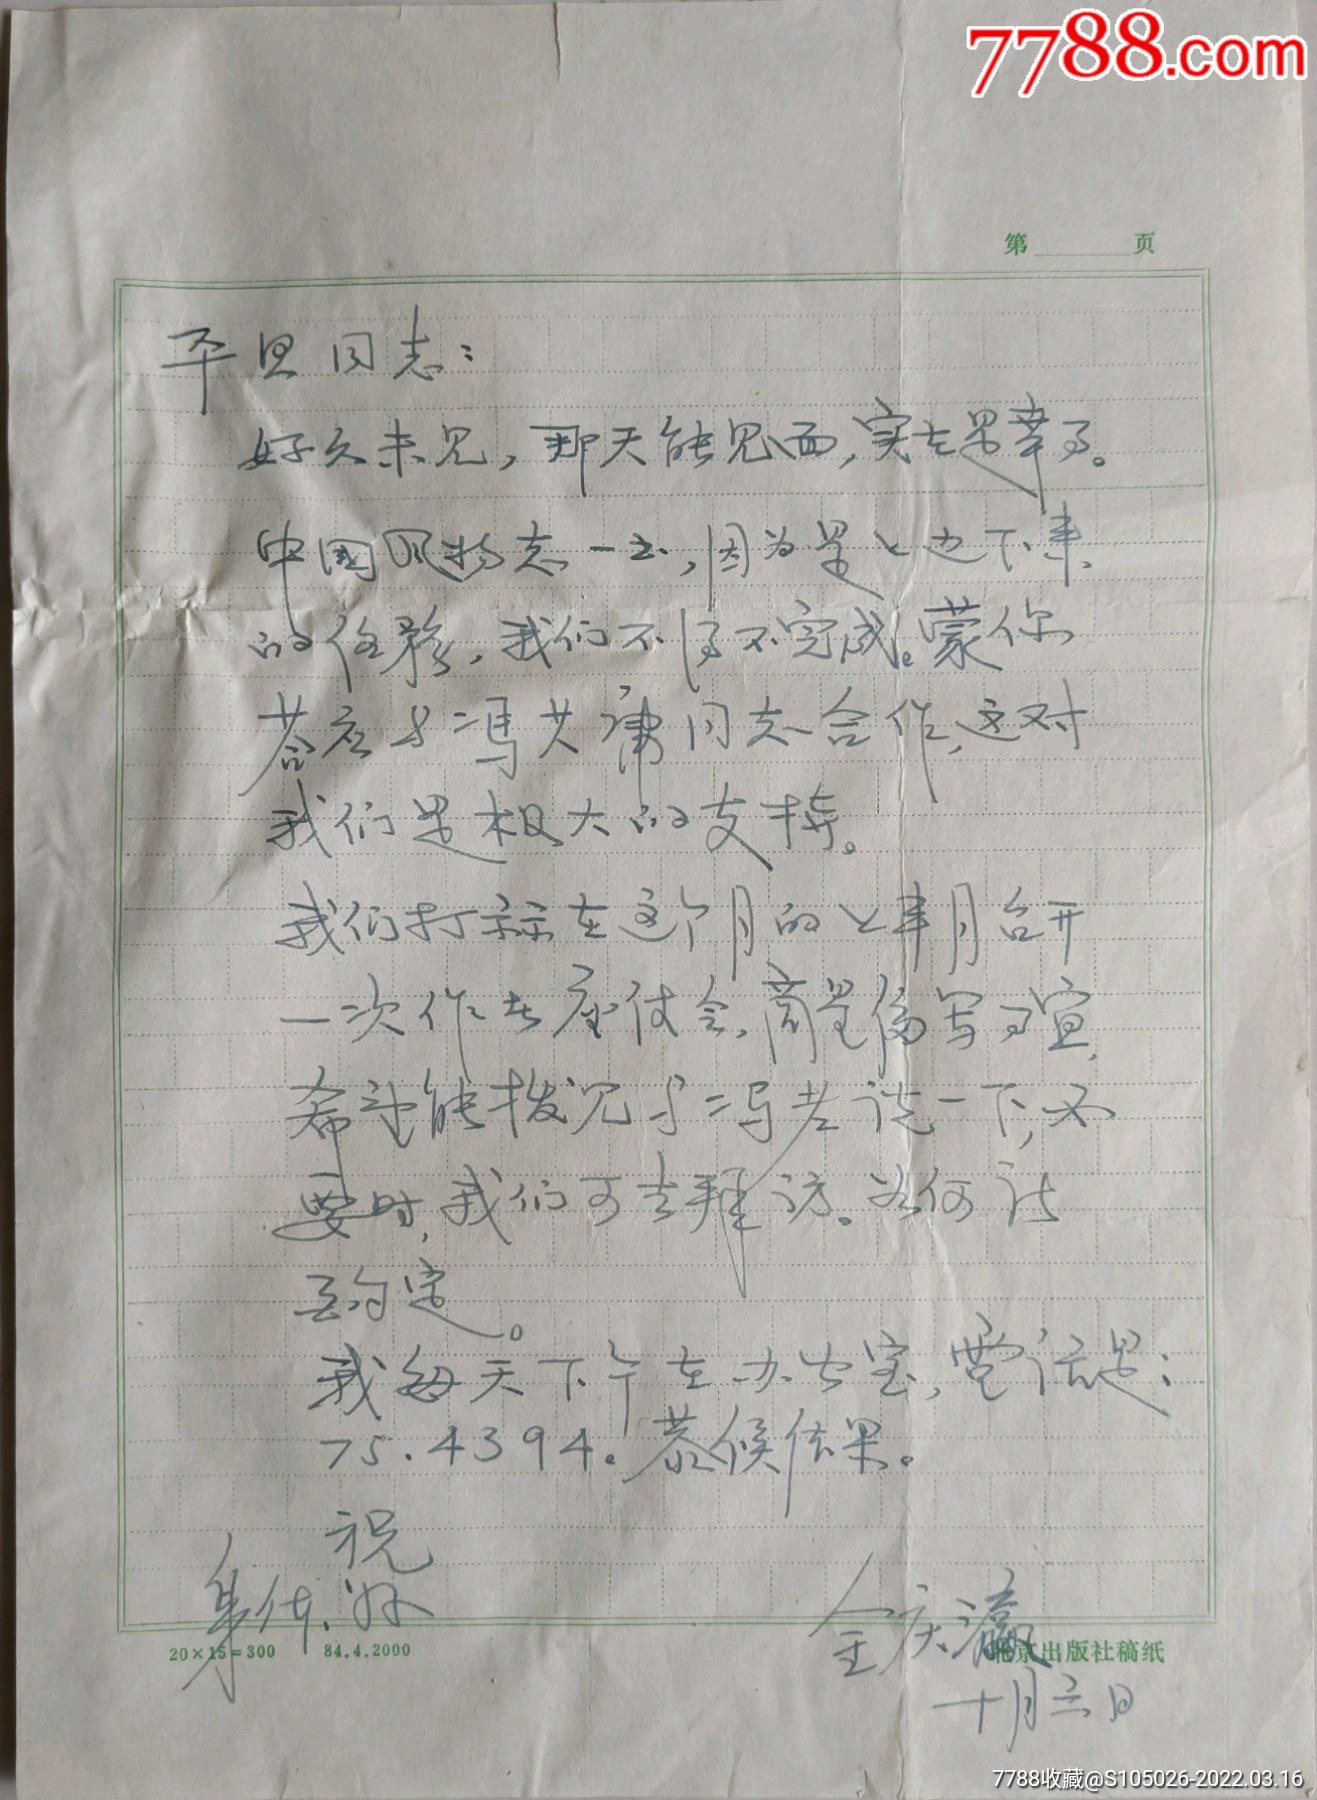 7788.com
第 页
平旦同志：
好久未见，那天能见面，实在是幸事。
中国风物志一书，因为是上边下来
的任务，我们不得不完成。蒙你
答应与冯其庸同志合作，这对
我们是极大的支持。
我们打算在这个月的上半月召开
一次作者座谈会，商量编写事宜，
希望能拨冗与冯老谈一下，必
要时，我们可去拜访。如何请
示约定。
我每天下午在办公室，电话是：
75.4394。恭候佳果。
祝
身体好
金庆瀛
十月六日
20×15=300 84.4.2000
北京出版社稿纸
7788收藏@S105026-2022.03.16